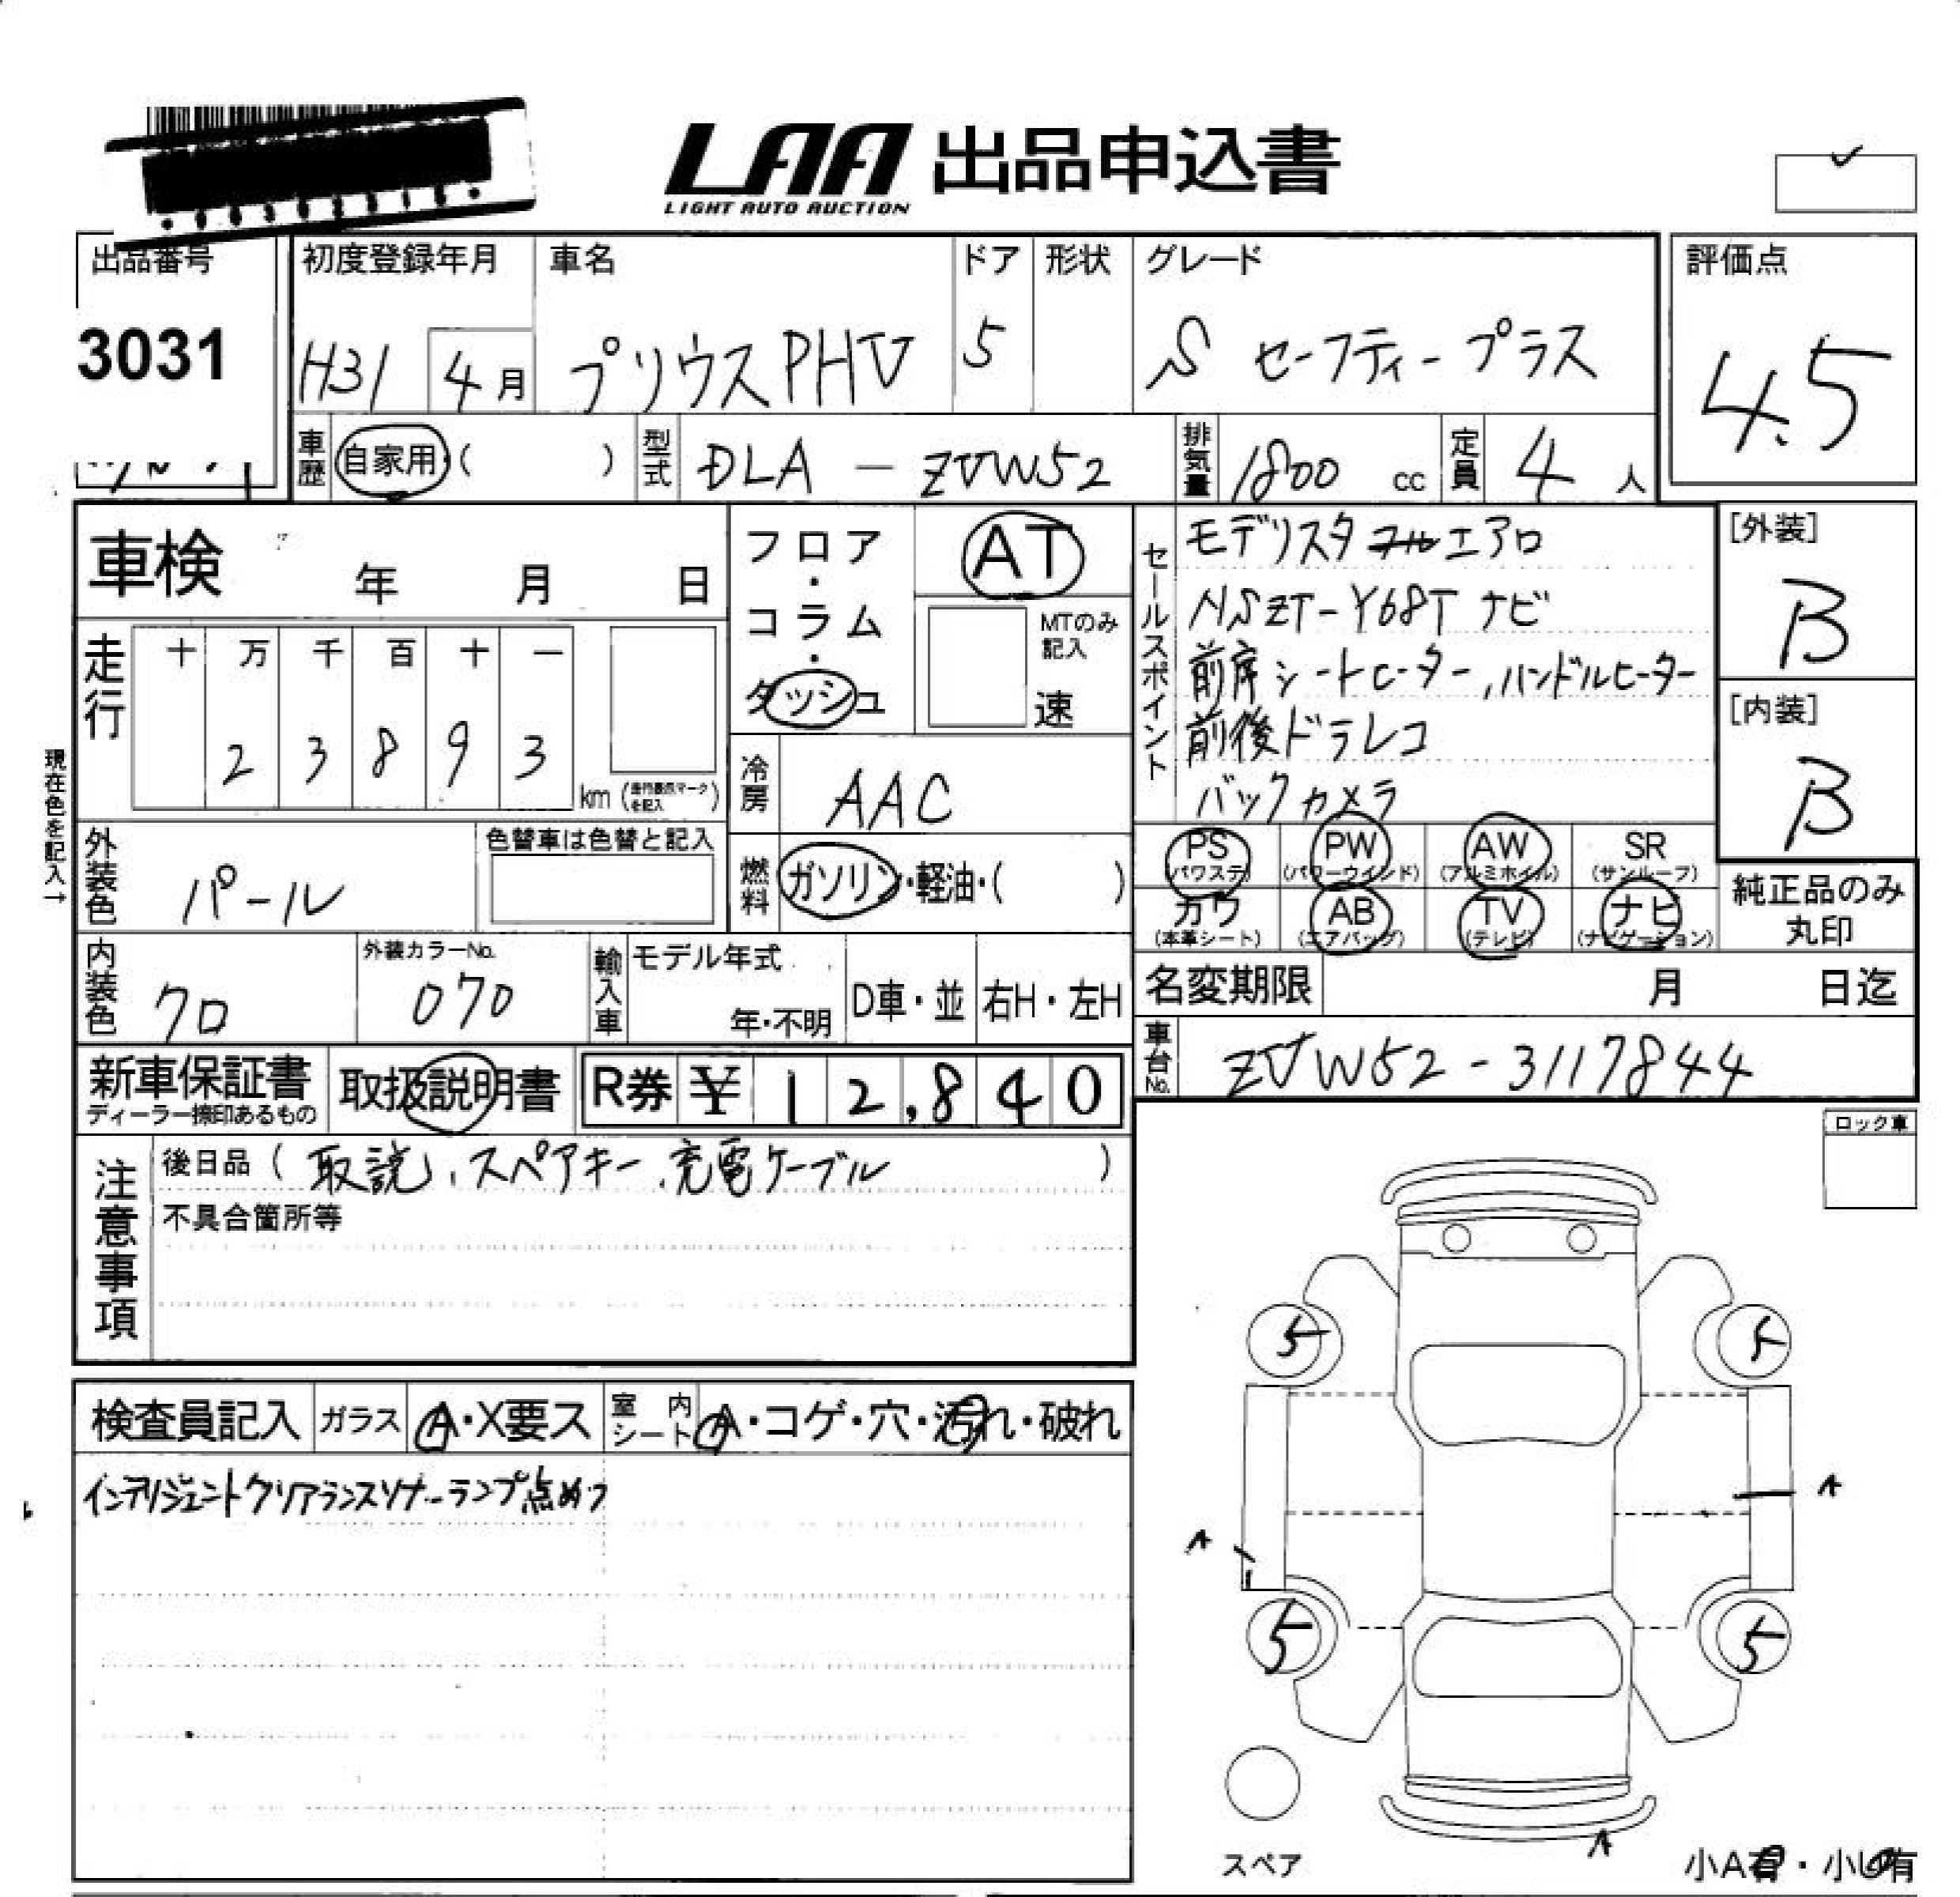 LAA 出品申込書
LIGHT AUTO AUCTION
出品番号
3031
初度登録年月
H31 4月
車名
プリウスPHV
ドア
5
形状
グレード
S セーフティープラス
評価点
4.5
車歴 自家用( )
型式 DLA - ZVW52
排気量 1800 cc
定員 4 人
車検 年 月 日
フロア・コラム・ダッシュ
AT
MTのみ記入
速
セールスポイント
モデリスタ エアロ
NSZT-Y68T ナビ
前席シートヒーター,ハンドルヒーター
前後ドラレコ
バックカメラ
[外装]
B
[内装]
B
走行
十 万 千 百 十 一
2 3 8 9 3
km (走行表示マークを記入)
現在色を記入→
冷房 AAC
外装色 パール
色替車は色替と記入
燃料 ガソリン・軽油・( )
PS (パワステ) PW (パワーウインド) AW (アルミホイル) SR (サンルーフ)
カワ (本革シート) AB (エアバッグ) TV (テレビ) ナビ (ナビゲーション)
純正品のみ丸印
内装色 クロ
外装カラーNo.
070
輸入車
モデル年式
年・不明
D車・並
右H・左H
名変期限 月 日迄
車台No. ZVW52-3117844
新車保証書
ディーラー捺印あるもの
取扱説明書
R券 ¥12,840
ロック車
注意事項
後日品 ( 取説、スペアキー、充電ケーブル )
不具合箇所等
検査員記入
ガラス A・X要ス
室内シート A・コゲ・穴・汚れ・破れ
インテリジェントクリアランスソナーランプ点めつ
5 5
A
A
5 5
A
スペア
小A有・小U有